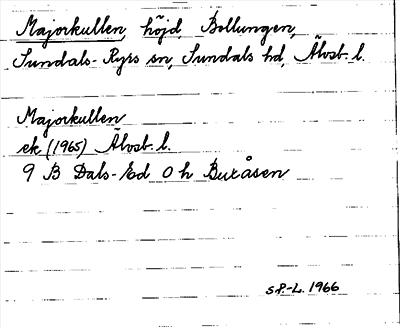 Majorkullen, höjd, Bollungen,
Sundals-Ryrs sn, Sundals hd, Älvsb. l.
Majorkullen
ek (1965) Älvsb. l.
9 B Dals-Ed 0 h Buxåsen
S.P.-L. 1966